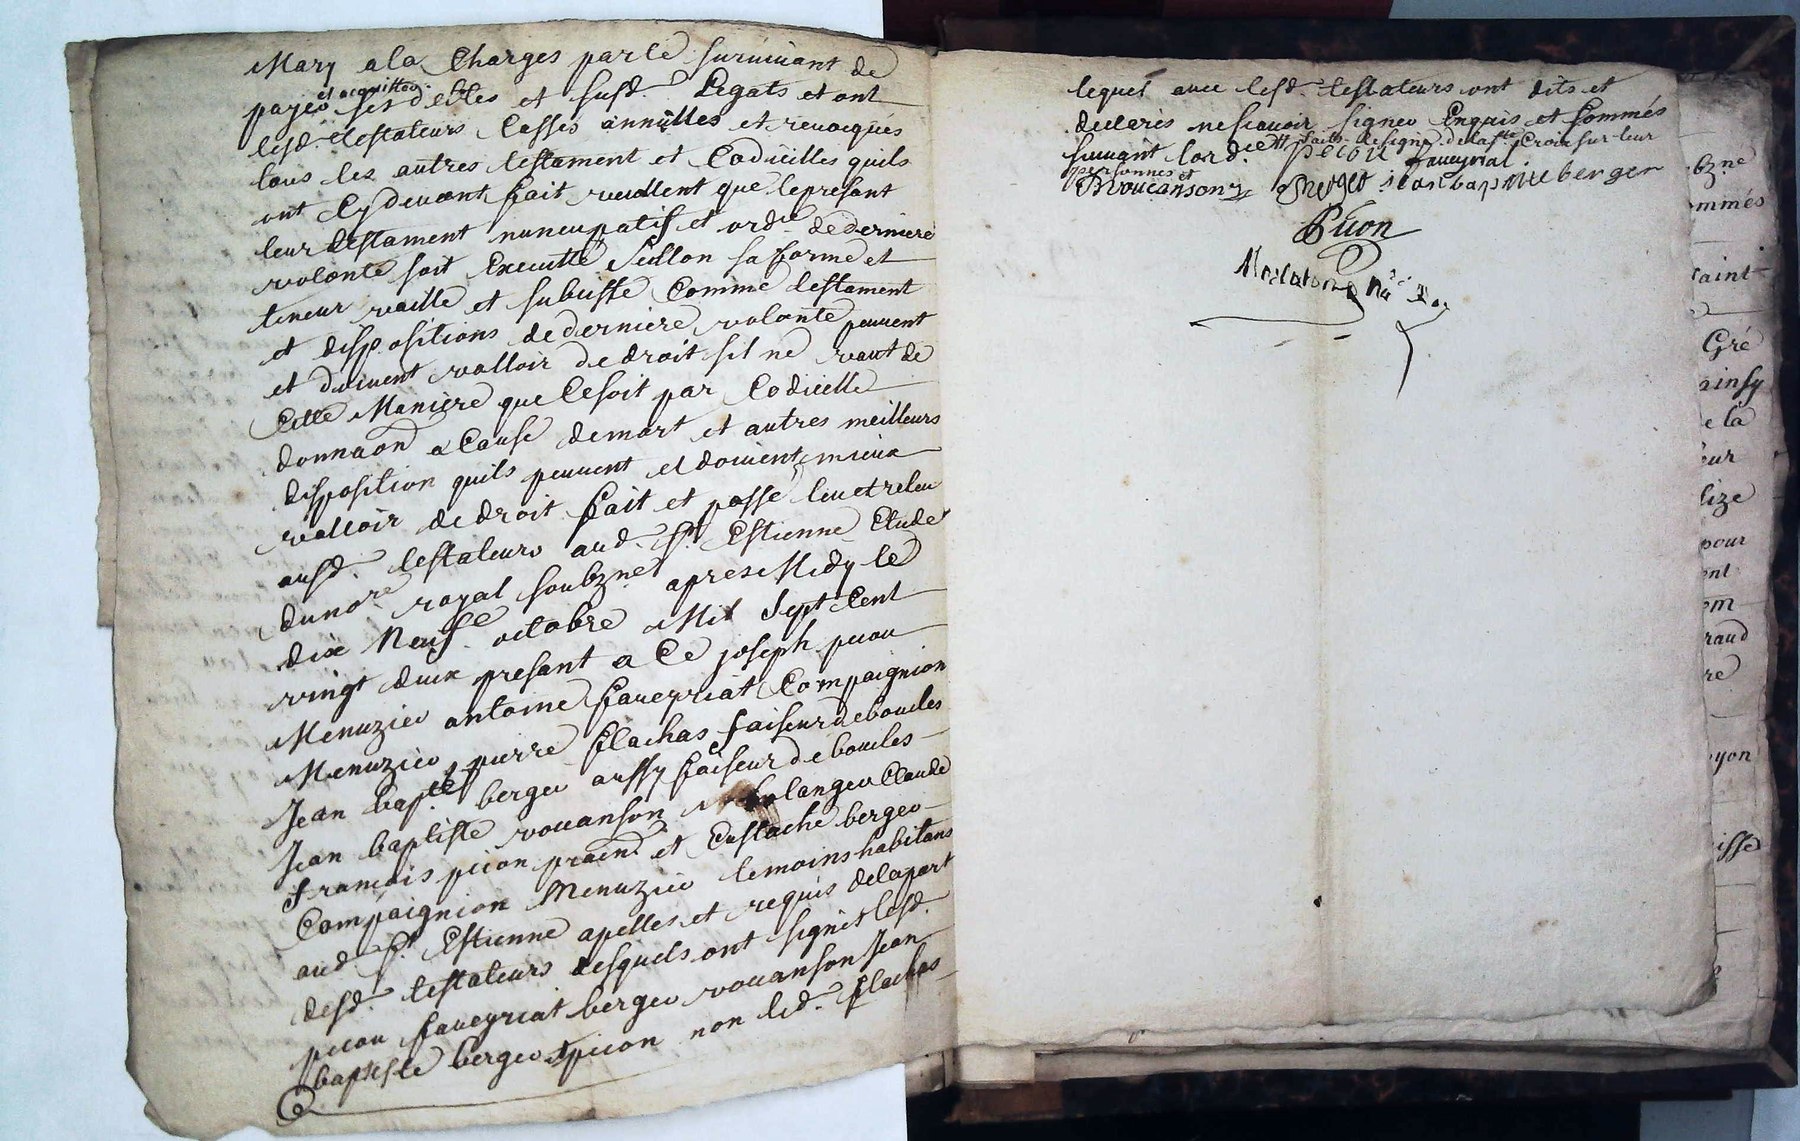 Mary a la Charges par le survivant de
et acquitter
payer ses debtes et susd. Legats et ont
lesd. testateurs Casses annulles et revocques
tous les autres testament et Codicilles quils
ont Cydevant fait veullent que le presant
leur testament nuncupatif et ord.re de derniere
volonte soit Executte Sellon sa forme et
teneur vaille et subciste Comme testament
et dispositions de derniere volonte peuvent
et doivent valloir de droit sil ne vaut de
Cette Maniere que Ce soit par Codicille
donnaon a Cause de mort et autres meilleurs
disposition quils peuvent et doivent mieux
valloir de droit fait et passé leu et releu
ausd. testateurs aud. St. Estienne Etude
du no.re royal soubzne apres Midy le
dix Neuf.e octobre Mil Sept Cent
vingt deux presant a Ce joseph picon
Menuzier antoine faveyriat Compaignion
Menuzier pierre flachas faiseur de boucles
Jean bap.te berger aussy faiseur de boucles
Jean baptiste vouanson boulanger Claude
francois picon praen. et Eustache berger
Compaignion Menuzier temoins habitans
aud St. Estienne apelles et requis de la part
desd. testateurs desquels ont signét lesd.
picon faveyriat berger vouanson Jean
baptiste berger et picon non led. flachas
lequel avec lesd. testateurs ont dits et
declarés ne scavoir signer Enquis et sommés
suivant lord.ce et faits le signe de la s.te Croix sur leur
personnes et picon faveyriat
Voucanson berger jean baptitte berger
Picon